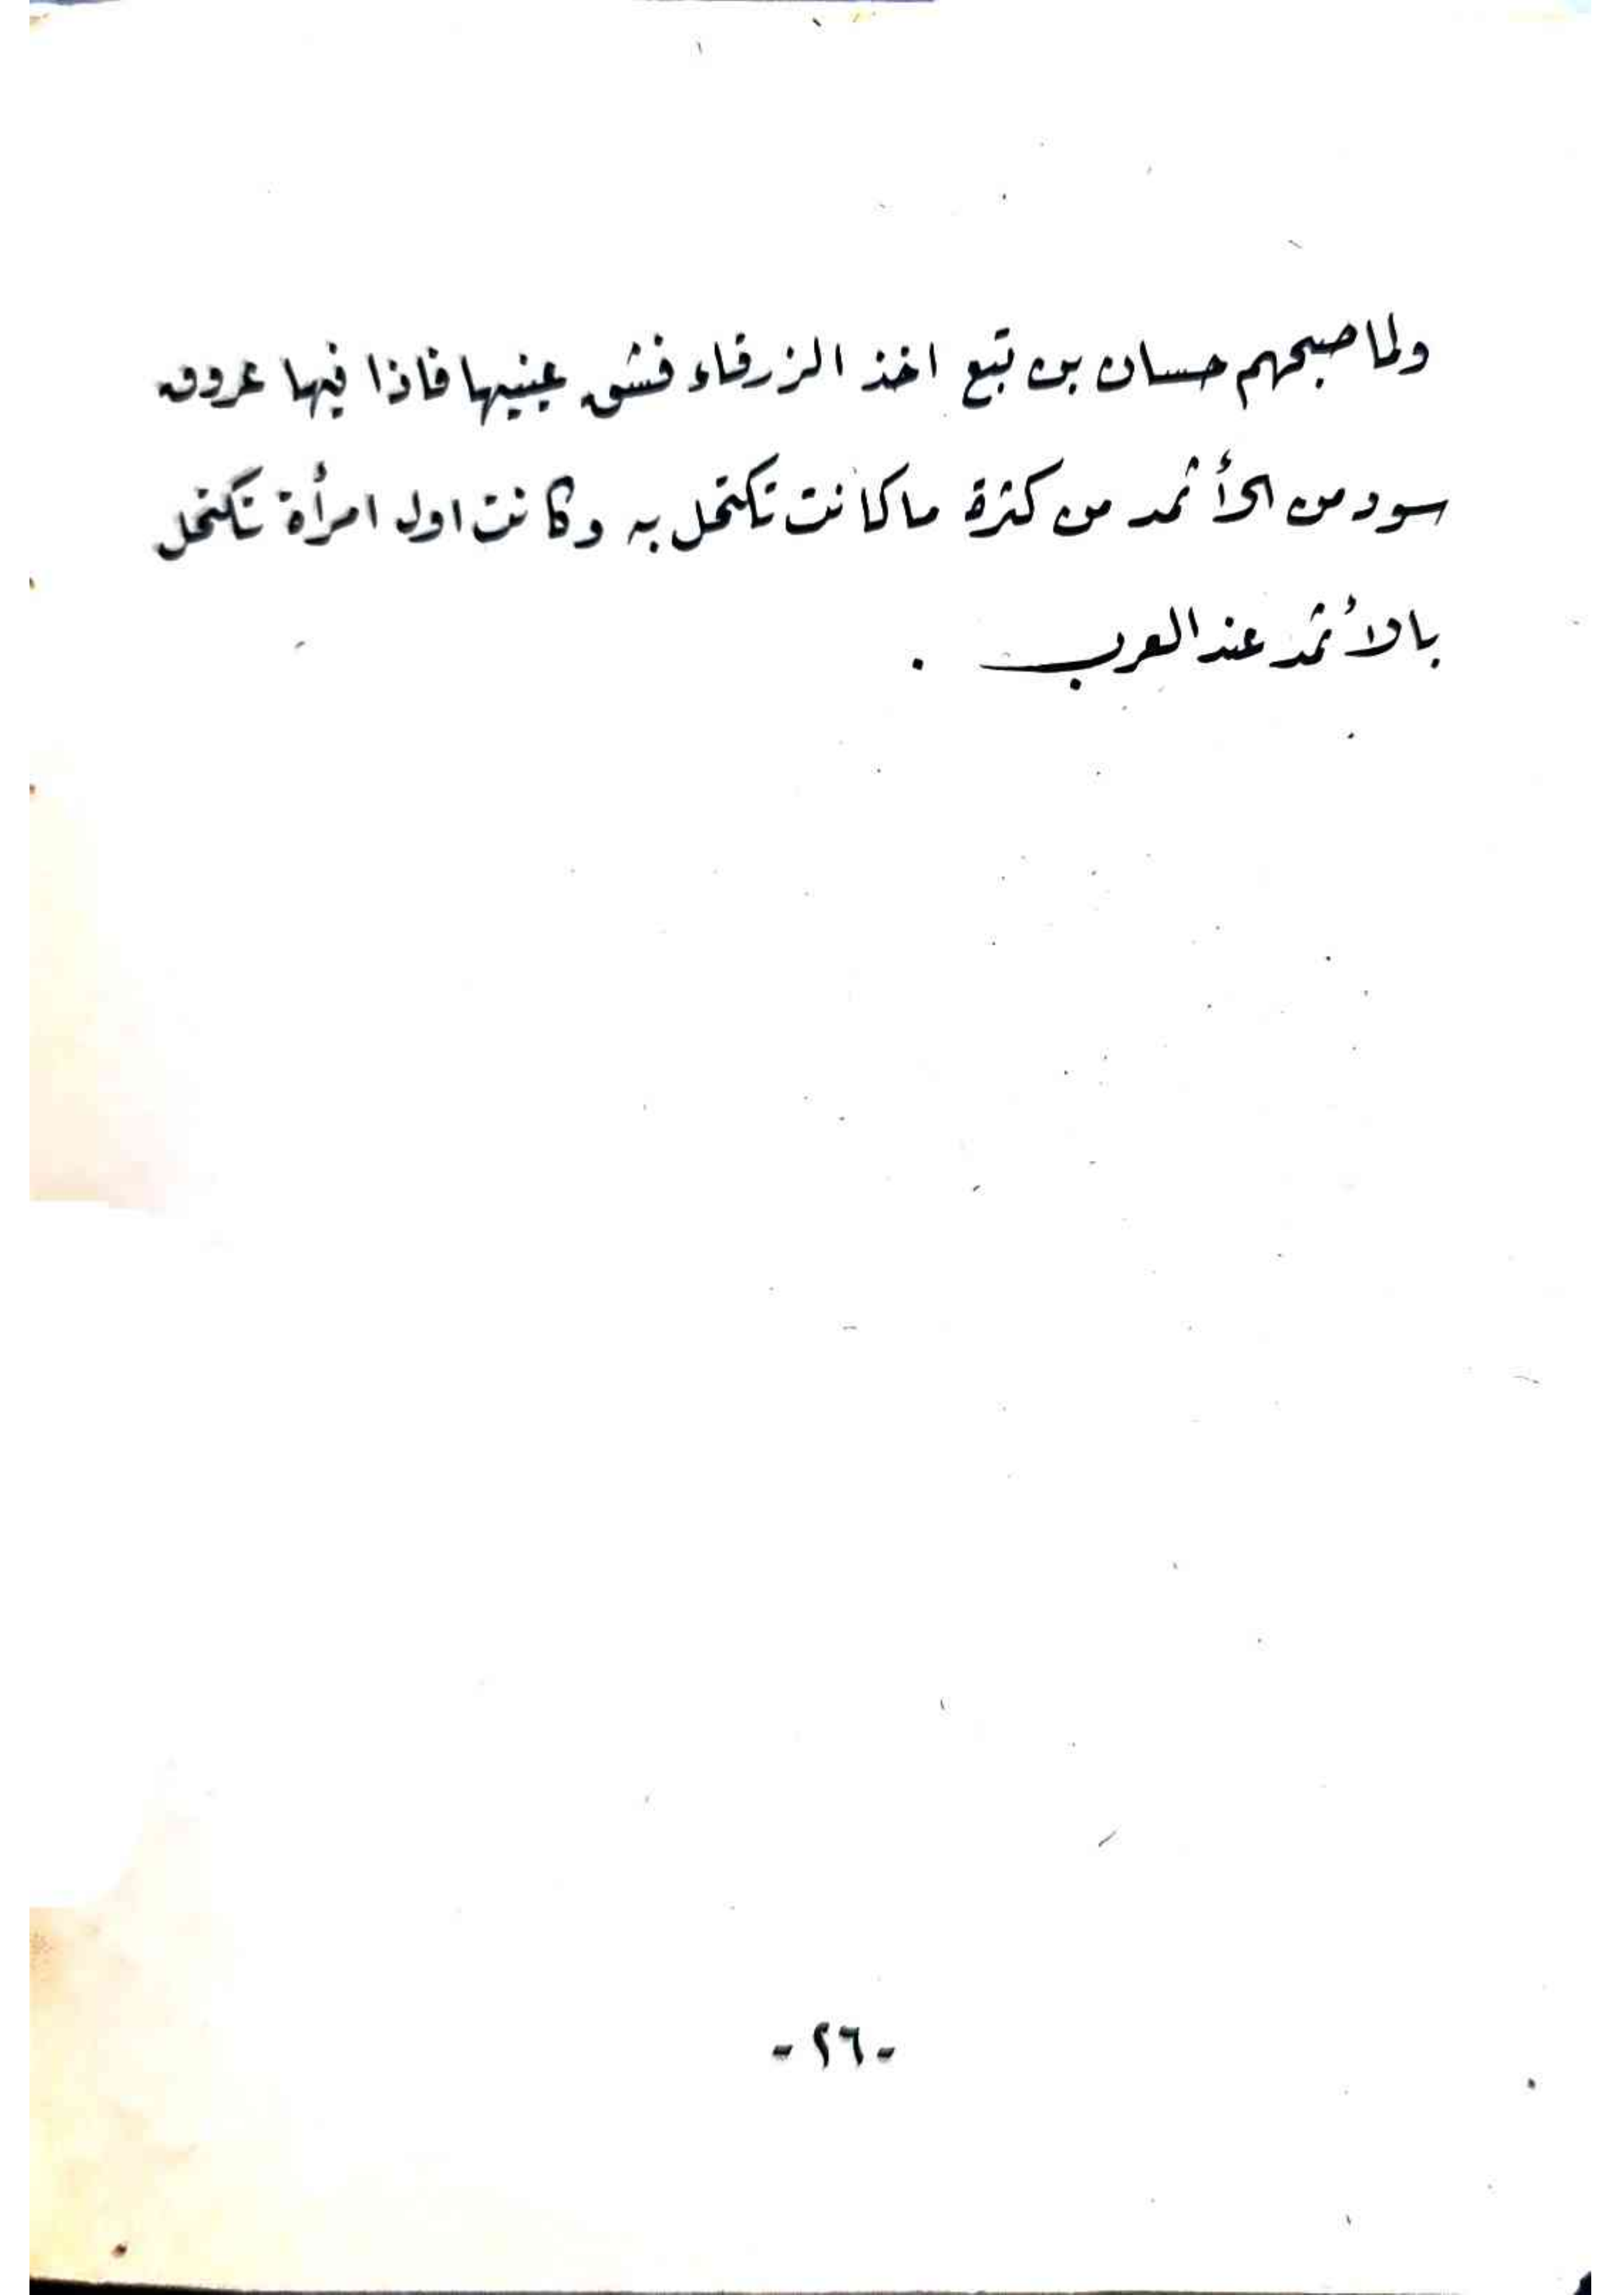 ولما صبحهم حسان بن تبع اخذ الزرقاء فشق عينيها فاذا فيها عروق
سود من الأثمد من كثرة ما كانت تكتحل به وكانت اول امرأة تكتحل
بالأثمد عند العرب .
- ٢٦ -